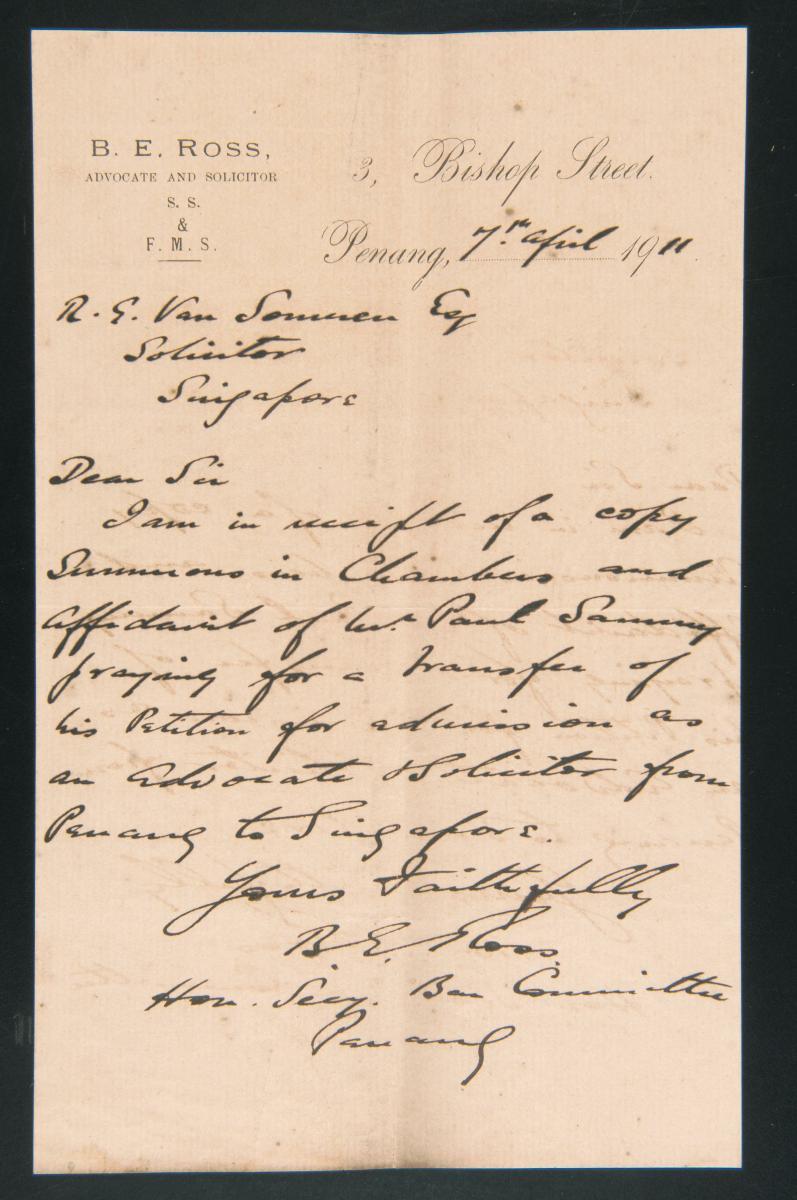 B. E. ROSS,
ADVOCATE AND SOLICITOR
S. S.
&
F. M. S.
3, Bishop Street.
Penang, 7th April 1911.
R. E. Van Someren Esq
Solicitor
Singapore
Dear Sir
I am in receipt of a copy
Summons in Chambers and
affidavit of Mr Paul Sammy
praying for a transfer of
his Petition for admission as
an Advocate & Solicitor from
Penang to Singapore.
Yours Faithfully
B. E. Ross.
Hon. Secy. Bar Committee
Penang